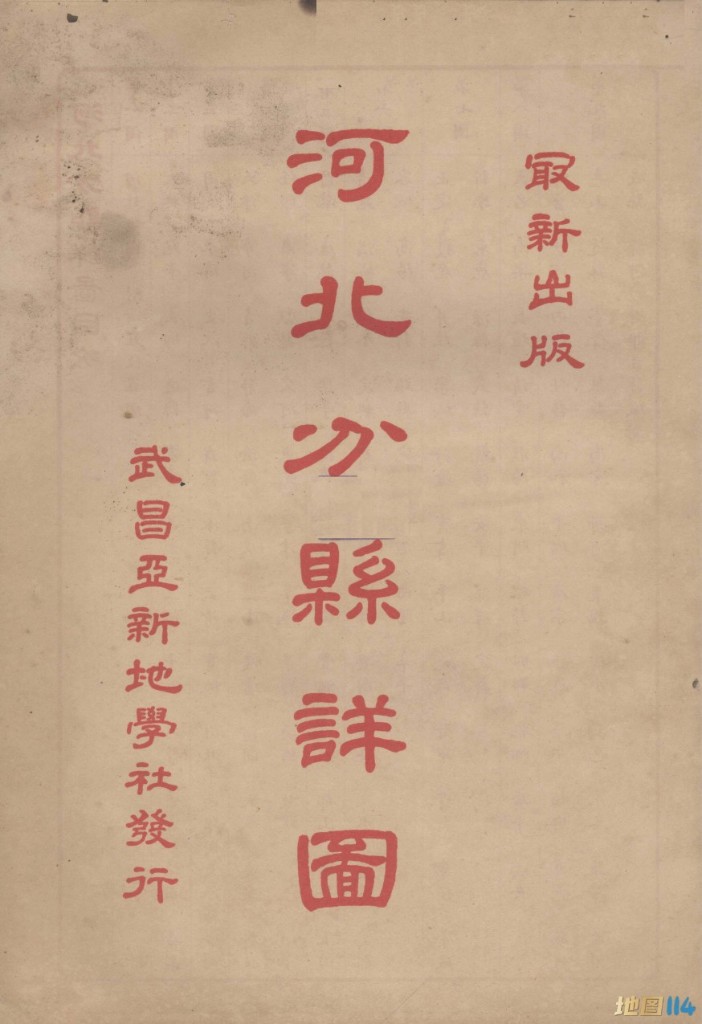 最新出版
河北分縣詳圖
武昌亞新地學社發行
地图114